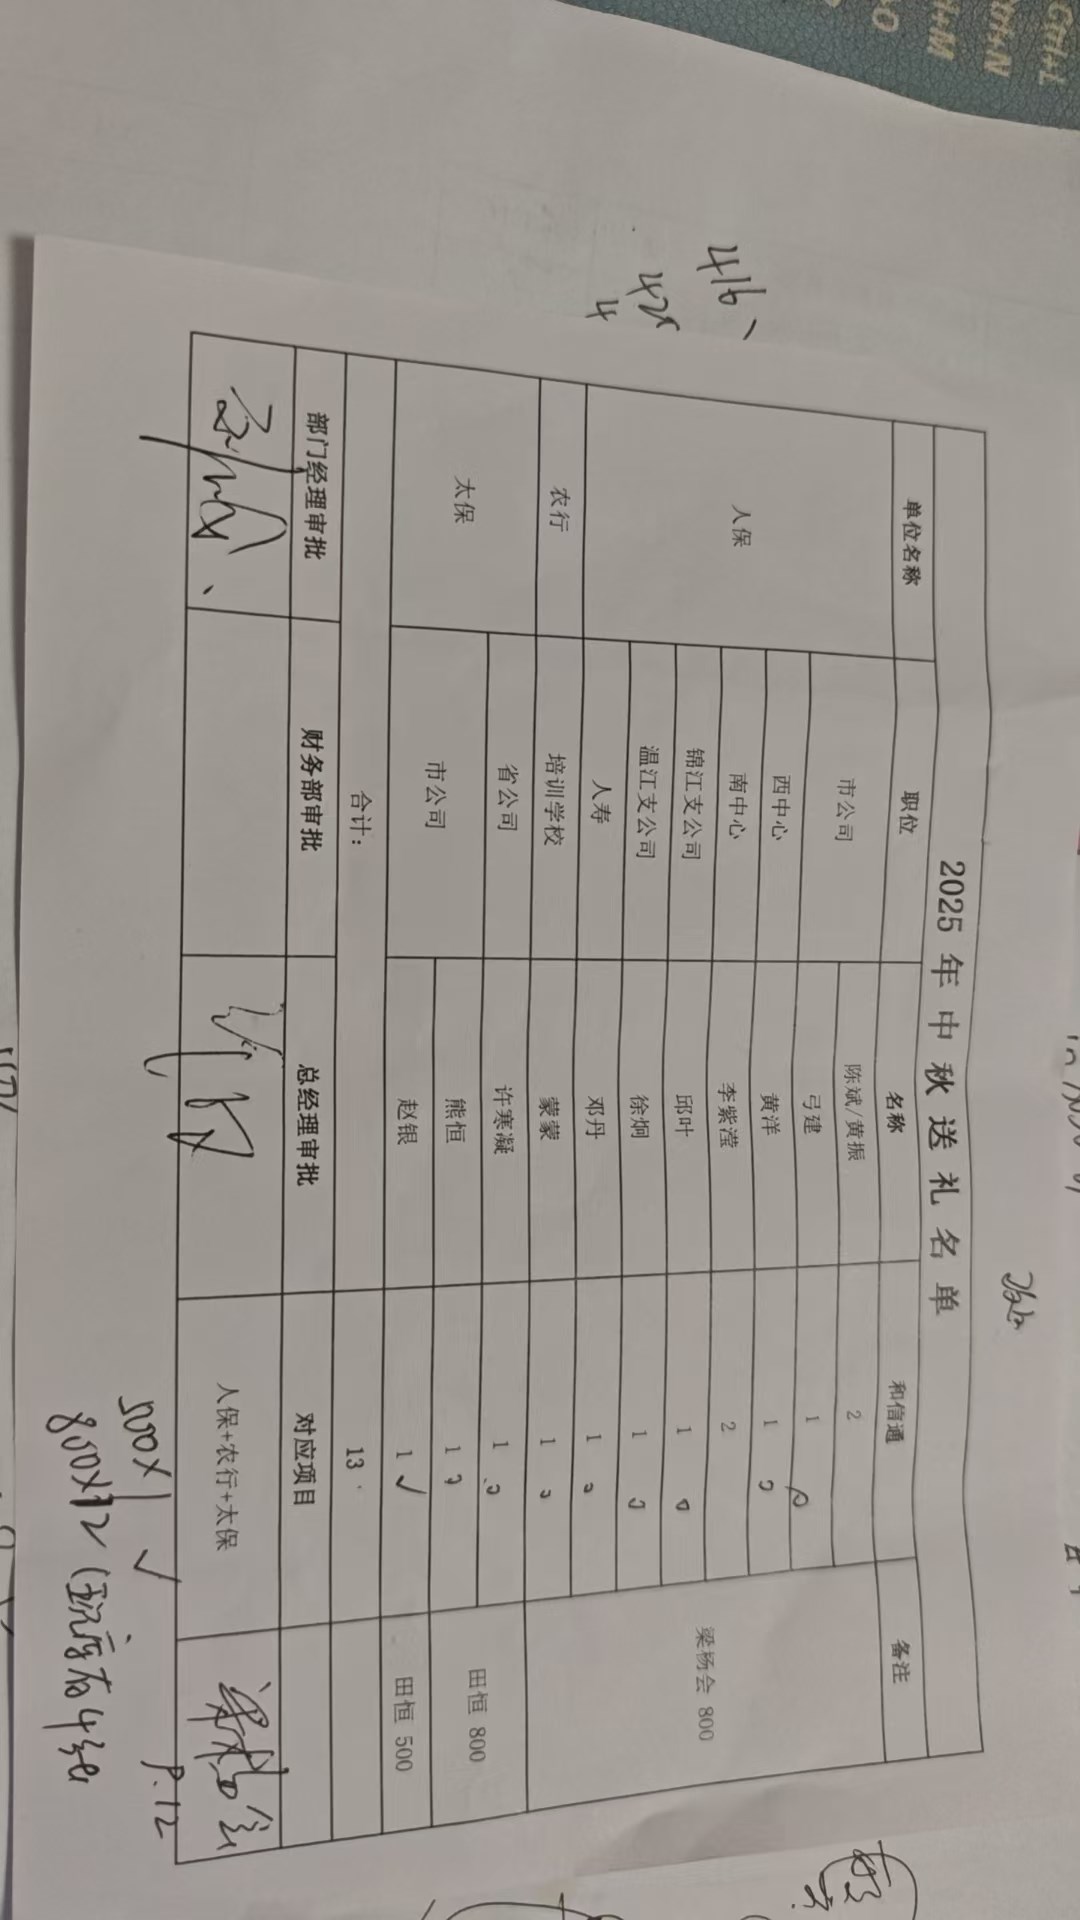 2025 年 中 秋 送 礼 名 单
单位名称 职位 名称 和信通 备注
人保 市公司 陈斌/黄振 2 梁杨会 800
弓建 1
西中心 黄洋 1
南中心 李紫滢 2
锦江支公司 邱叶 1
温江支公司 徐炯 1
人寿 邓丹 1
农行 培训学校 蒙蒙 1
太保 省公司 许寒凝 1 田恒 800
市公司 熊恒 1
赵银 1 ✓ 田恒 500
合计： 13
部门经理审批 财务部审批 总经理审批 对应项目
人保+农行+太保 梁杨会
500X1 ✓ 9.12
800X12
416、
425
4